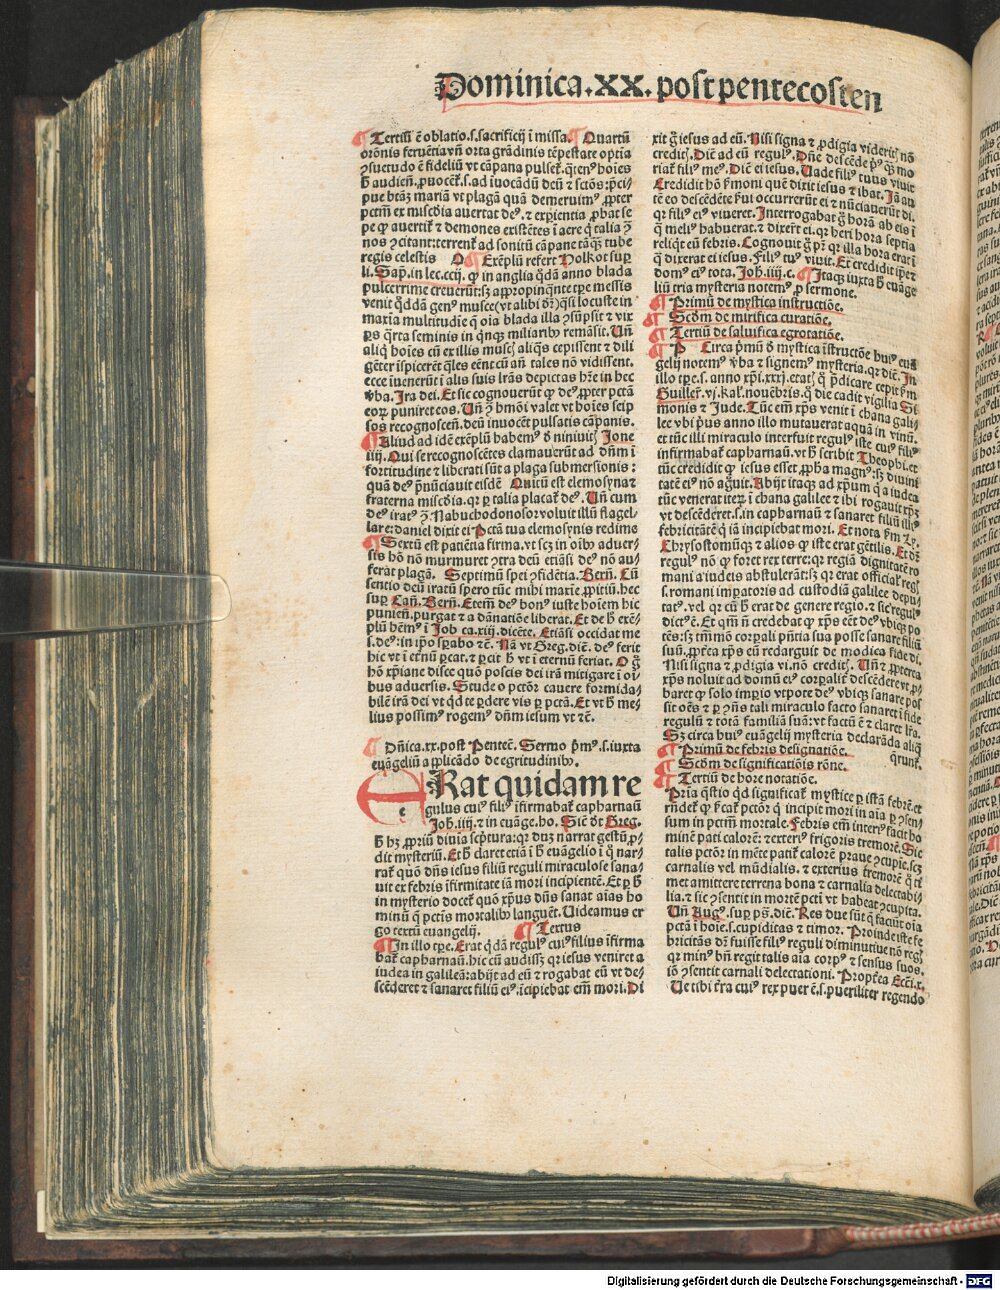 Dominica.XX.post pentecosten
Tertiũ ē oblatio.s.sacrificij ĩ missa. Quartũ
orõnis feruẽtia vñ orta grãdinis tẽpestate optia
ꝯsuetudo ē fideliũ vt cãpana pulset᷑. qͥtenꝰ hoĩes
ħ audien. ꝓuocẽt᷑.s.ad iuocãdũ deũ ⁊ sctõs: pͥci-
pue btãꝫ mariã vt plagã quã demeruimꝰ ꝓpter
pctm̃ ex mĩscđia auertat deꝰ. ⁊ expientia ꝓbat se
pe ꝙ auertit᷑ ⁊ demones existẽtes ĩ aere qͥ talia ꝯ
nos ꝯcitant: terrent᷑ ad sonitũ cãpane tãqꝫ tube
regis celestis Exẽplũ refert Polkot sup̱
li. Sap̱. in lec.ccij. ꝙ in anglia qͥdã anno blada
pulcerrime creuerũt: sꝫ appropinqͣnte tp̱e messis
venit qͦddã genꝰ musce (vt alibi dr̃) qͣsi locuste in
maxia multitudie qͥ oia blada illa ꝯsũpsit ⁊ vix
p̱s qͣrta seminis in qͥnqꝫ miliaribꝰ remãsit. Vñ
aliqͥ hoĩes cũ ex illis muscꝫ aliqͣs cepissent ⁊ dili
gẽter ĩspicerẽt qͣles eẽnt cũ añ tales nõ vidissent.
ecce iuenerũt ĩ alis suis lr̃as depictas hr̃e in hec
v̓ba. Ira dei. Et sic cognouerũt ꝙ deꝰ ꝓpter pctã
eoꝝ puniret eos. Vñ ꝫ hmõi valet vt hoĩes seip
sos recognoscẽn. deũ inuocẽt pulsatis cãpanis.
Aliud ad idẽ exẽplũ habemꝰ đ niniuitꝫ Jone
iij. Qui se recognoscẽtes clamauerũt ad dñm ĩ
fortitudine ⁊ liberati sũt a plaga submersionis:
quã deꝰ p̄nũciauit eisdẽ Quitũ est elemosyna ⁊
fraterna mĩscđia. qꝛ p̱ talia placat᷑ deꝰ. Vñ cum
deꝰ iratꝰ ꝯ Nabuchodonosor voluit illũ flagel-
lare: daniel dixit ei Pctã tua elemosynis redime
Sextũ est patiẽtia firma. vt scꝫ in oĩbꝰ aduer-
sis hõ nõ murmuret ꝯtra deũ etiãsi deꝰ nõ au-
ferat plagã. Septimũ spei ꝯfidẽtia. Bern. Cũ
sentio deũ iratũ spero tũc mihi marie ꝓpitiũ. hec
sup̱ Cañ. Bern. Etem̃ deꝰ bonꝰ iuste hoĩem hic
punien. purgat ⁊ a dãnatiõe liberat. Et de ħ exẽ-
plũ hẽmꝰ ĩ Job ca.xiij. dicẽte. Etiãsi occidat me
s.deꝰ: in ip̄o sp̱abo ⁊c̃. Nã vt Greg. dic̃. deꝰ ferit
hic vt ĩ et̃nũ p̱cat. ⁊ p̱cit ħ vt ĩ eternũ feriat. O gͦ
hõ xp̄iane disce quõ possis dei irã mitigare ĩ oĩ-
bus aduersis. Stude o pctõr cauere formida-
bilẽ irã dei vt qͦd te p̱dere vis p̱ pctã. Et vt ħ me-
lius possimꝰ rogemꝰ dñm iesum vt ⁊c̃.
Dñica.xx.post Pentec̃. Sermo pͥmꝰ.s.iuxta
euãgeliũ applicãdo de egritudinibꝰ.
ERat quidam re
gulus cuiꝰ filiꝰ ĩfirmabat᷑ capharnaũ
Joh.iiij.⁊ in euãge.ho. Sic̃ đt Greg.
ħ hꝫ ꝓpriũ diuia scp̃tura: qꝛ dũ narrat gestũ ꝓ-
dit mysteriũ. Et ħ claret etiã ĩ ħ euãgelio ĩ qͦ nar-
rat᷑ quõ dñs iesus filiũ reguli miraculose sana-
uit ex febris ĩfirmitate iã mori incipientẽ. Et p̱ ħ
in mysterio docet᷑ quõ xp̄us dñs sanat aĩas ho
minũ qͥ pctis mortalibꝰ languẽt. Videamus er
go textũ euangelij. Textus
In illo tp̱e. Erat qͥdã regulꝰ cuiꝰ filius ĩfirma
bat᷑ capharnaũ. hic cũ audissꝫ qꝛ iesus veniret a
iudea in galileã: abijt ad eũ ⁊ rogabat eũ vt de-
scẽderet ⁊ sanaret filiũ eiꝰ. ĩcipiebat em̃ mori. Di
xit gͦ iesus ad eũ. Nisi signa ⁊ ꝓdigia videritꝫ nõ
creditꝫ. Dic̃ ad eũ regulꝰ. Dñe descẽde pͥꝰ qͣꝫ mo
riat᷑ filiꝰ meꝰ. Dic̃ ei iesus. Vade filiꝰ tuus viuit
Credidit hõ f̓moni quẽ dixit iesus ⁊ ibat. Jã aũ
tẽ eo descẽdẽte f̓ui occurrerũt ei ⁊ nũciauerũt di.
qꝛ filiꝰ eiꝰ viueret. Interrogabat gͦ horã ab eis ĩ
qͣ meliꝰ habuerat. ⁊ dixerũt ei. qꝛ heri hora septia
reliqͥt eũ febris. Cognouit gͦ pr̃ qꝛ illa hora erat ĩ
qͣ dixerat ei iesus. Filiꝰ tuꝰ viuit. Et credidit ip̄e ⁊
domꝰ eiꝰ tota. Joh.iiij.c. Itaqꝫ iuxta ħ euãge
liũ tria mysteria notemꝰ ꝓ sermone.
Primũ de mystica instructiõe.
Scđm de mirifica curatiõe.
Tertiũ de saluifica egrotatiõe.
Circa pͥmũ đ mystica ĩstructõe huiꝰ euã
gelij notemꝰ v̓ba ⁊ signemꝰ mysteria. qꝛ dic̃. In
illo tp̱e.s. anno xp̄i.xxxj. etatꝫ qͦ p̄dicare cepit f̓m
Guiller. vj. kal. nouẽbris. qͣ die cadit vigilia Si
monis ⁊ Jude. Tũc em̃ xp̄s venit ĩ chana gali-
lee vbi pͥus anno illo mutauerat aquã in vinũ.
et tũc illi miraculo interfuit regulꝰ iste cuiꝰ filiꝰ
infirmabat᷑ capharnaũ. vt ħ scribit Theophi. et
tũc credidit ꝙ iesus esset ꝓpħa magnꝰ: sꝫ diuini
tatẽ eiꝰ nõ agͦuit. Abijt itaqꝫ ad xp̄um qͥ a iudea
tũc venerat iteꝝ ĩ chana galilee ⁊ ibi rogauit xp̄ꝫ
vt descẽderet.s.in capharnaũ ⁊ sanaret filiũ illiꝰ
febricitãtẽ qͥ iã incipiebat mori. Et nota f̓m Ly.
Chrysostomũqꝫ ⁊ alios ꝙ iste erat gẽtilis. Et đꝛ
regulꝰ nõ ꝙ foret rex terre: qꝛ regiã dignitatẽ ro
mani a iudeis abstulerãt: sꝫ qꝛ erat officialꝫ regꝫ
s.romani imp̱atoris ad custodiã galilee depu-
tatꝰ. vel qꝛ cũ ħ erat de genere regio. ⁊ sic regulꝰ
dictꝰ ẽ. Et qm̃ ñ credebat ꝙ xp̄s eẽt deꝰ vbiqꝫ po
tẽs: sꝫ tm̃mõ corp̱ali pñtia sua posse sanare filiũ
suũ. ꝓpt̓ea xp̄s eũ redarguit de modica fide di.
Nisi signa ⁊ ꝓdigia vi. nõ creditꝫ. Vñ ⁊ ꝓpterea
xp̄s noluit ad domũ eiꝰ corp̱alit̓ descẽdere vt ꝓ-
baret ꝙ solo imp̱io vtpote deꝰ vbiqꝫ sanare pos
sit oẽs ⁊ p̱ ꝯñs tali miraculo facto sanaret ĩ fide
regulũ ⁊ totã familiã suã: vt factũ ẽ ⁊ claret lr̃a.
Sꝫ circa huiꝰ euãgelij mysteria declarãda aliqͣ
Primũ de febris designatiõe. qrunt᷑.
Scđm de significatiõis rõne.
Tertiũ de hore notatiõe.
Pͥria qͣstio qͥd significat᷑ mystice p̱ istã febrẽ. et
rñdet᷑ ꝙ f̓cat᷑ pctõr qͥ incipit mori in aĩa p̱ ꝯsen-
sum in pctm̃ mortale. Febris em̃ interiꝰ facit ho
minẽ pati calorẽ: ⁊ exteriꝰ frigoris tremorẽ. Sic
talis pctõr in mẽte patit᷑ calorẽ praue ꝯcupie. scꝫ
carnalis vel mũdialis. ⁊ exterius tremorẽ qͦ ti
met amittere terrena bona ⁊ carnalia delectabi
lia. ⁊ sic ꝯsentit in mortẽ pcti vt habeat ꝯcupita.
Vñ Augꝰ. sup̱ ps̃. dic̃. Res due sũt qͣ faciũt oĩa
pctã ĩ hoĩe.s. cupiditas ⁊ timor. Proinde iste fe
bricitãs dr̃ fuisse filiꝰ reguli diminutiue nõ regꝫ
qꝛ minꝰ bñ regit talis aĩa corpꝰ ⁊ sensus suos.
iõ ꝯsentit carnali delectationi. Propt̓ea Ecci.x.
Ve tibi t̓ra cuiꝰ rex puer ẽ.s. pueriliter regendo
Digitalisierung gefördert durch die Deutsche Forschungsgemeinschaft - DFG